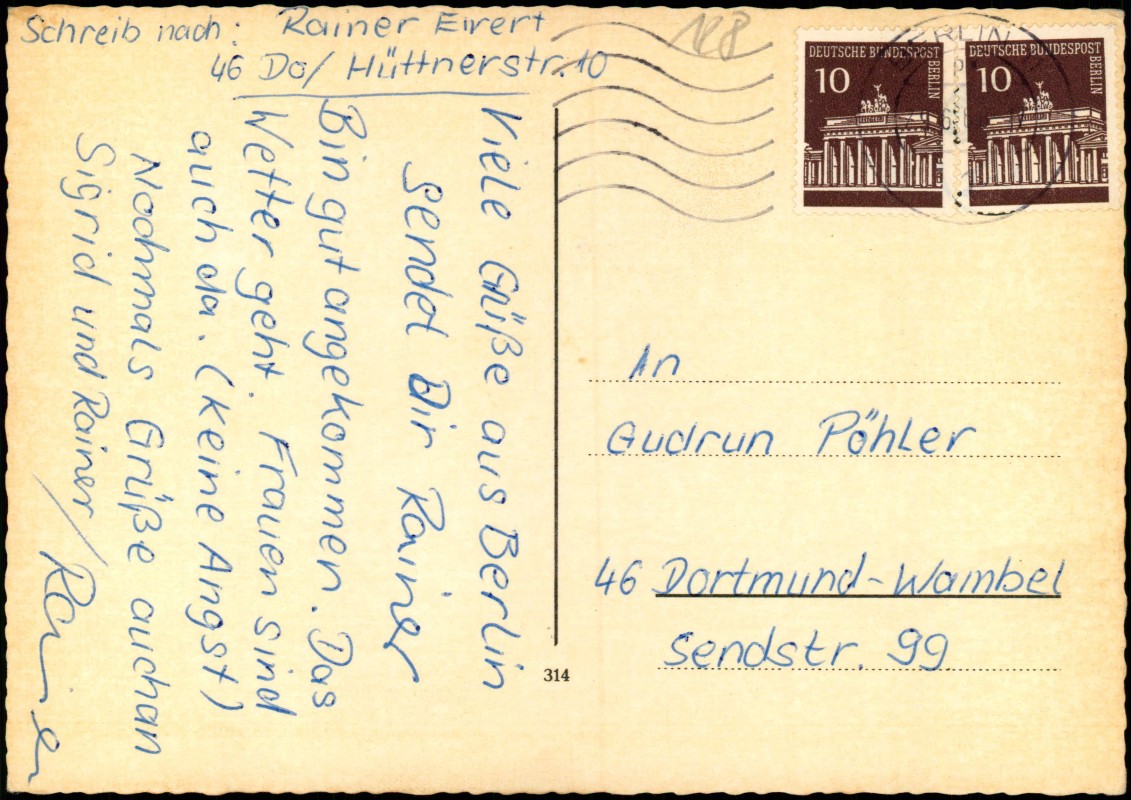 Schreib nach: Rainer Ewert
46 Do/ Hüttnerstr. 10
Viele Grüße aus Berlin
sendet Dir Rainer
Bin gut angekommen. Das
Wetter geht. Frauen sind
auch da. (Keine Angst)
Nochmals Grüße auch an
Sigrid und Rainer/
Rainer
118
DEUTSCHE BUNDESPOST
BERLIN
10
DEUTSCHE BUNDESPOST
BERLIN
10
BERLIN
An
Gudrun Pöhler
46 Dortmund-Wambel
Sendstr. 99
314